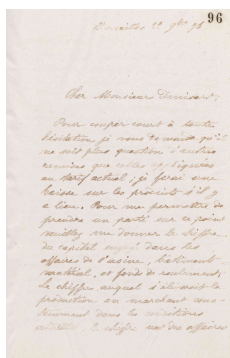 96
Bruxelles 20 9bre 96
Cher Monsieur
Pour couper court à toute
hésitation je vous demande qu'il
ne soit plus question d'autres
remises que celles
au tarif actuel; je ferai une
baisse sur les produits s'il y
a lieu. Pour me permettre de
prendre un parti sur ce point
veuillez me donner le chiffre
du capital engagé dans les
affaires de l'usine, bâtiment
matériel, et fond de roulement,
le chiffre auquel s'élèverait la
production en marchant
dans les conditions
actuelles, le chiffre des affaires